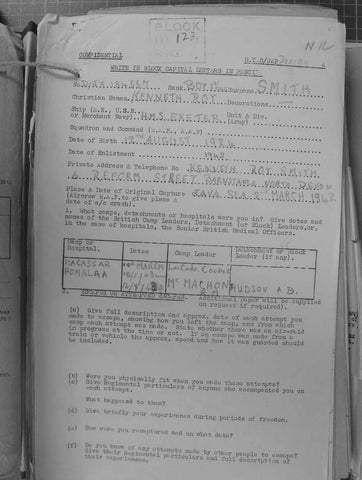 BLOCK
123
CONFIDENTIAL
M.I.9/JAP/
WRITE IN BLOCK CAPITAL LETTERS IN PENCIL
No. Rank BOY Surname SMITH
Christian Names KENNETH ROY Decorations —
Ship (R.N., U.S.N. or Merchant Navy) H.M.S. EXETER Unit & Div. (Army)
Squadron and Command (R.A.F., A.A.F)
Date of Birth 12TH AUGUST 1924
Date of Enlistment 1940
Private Address & Telephone No KENNETH ROY SMITH
6 REFORM STREET BARNSTAPLE NORTH DEVON
Place & Date of Original Capture JAVA SEA 2ND MARCH 1942
(Aircrew R.A.F. to give place &
date of a/c crash)
1. What camps, detachments or hospitals were you in? Give dates and
names of the British Camp Leaders, Detachment (or Block) Leaders, or,
in the case of hospitals, the Senior British Medical Officers.
Camp or Hospital. Date Camp Leader Detachment or Block Leader (if any).
MACASSAR MARCH COOPER
POMALAA Mc MACHON HUDSON A.B.
2. Additional paper will be supplied
on request if required).
(a) Give full description and approx. date of each attempt you
made to escape, showing how you left the camp, and from which
camp each attempt was made. State whether there was an air-raid
in progress at the time or not. If an escape was made from a
train or vehicle the approx. speed and how it was guarded should
be included.
(b) Were you physically fit when you made these attempts?
(c) Give Regimental particulars of anyone who accompanied you on
each attempt.
What happened to them?
(d) Give briefly your experiences during periods of freedom.
(e) How were you recaptured and on what date?
(f) Do you know of any attempts made by other people to escape?
Give their Regimental particulars and full description of
their experiences.